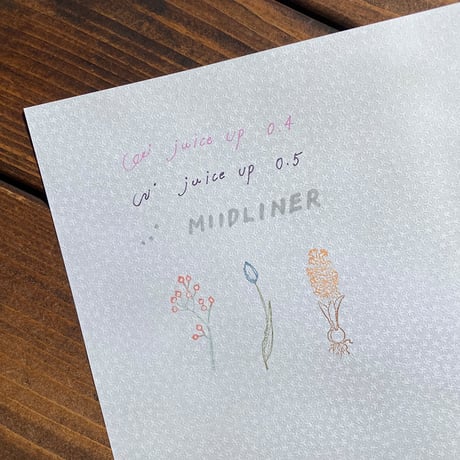 juice up 0.4
juice up 0.5
MIIDLINER